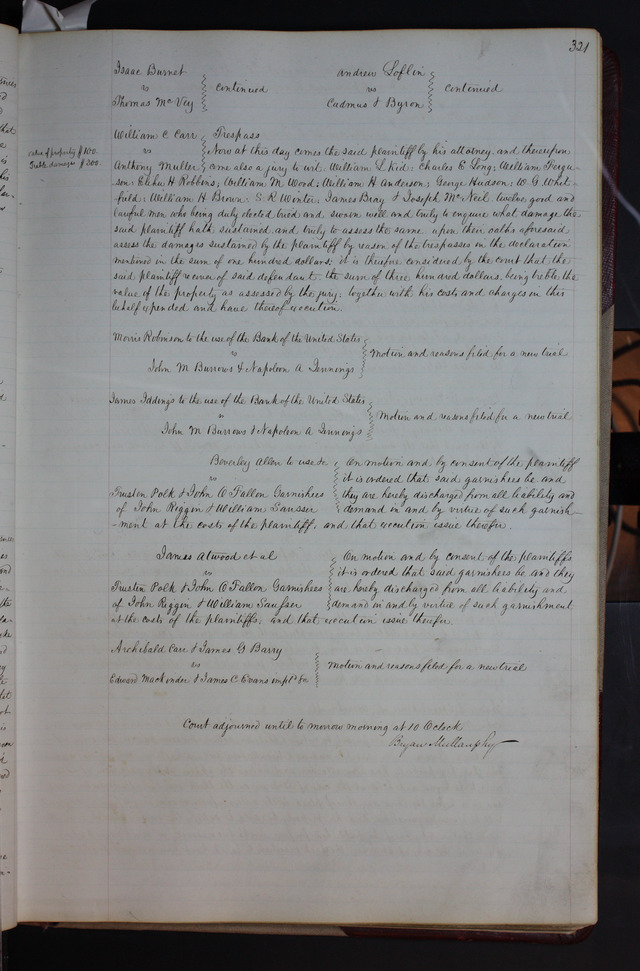 321
Isaac Burnet
vs
Thomas McVey
continued
Andrew Loflin
vs
Cadmus & Byron
continued
Value of property $100.
Treble damages $300.
William C Carr
vs
Anthony Muller
Trespass
Now at this day comes the said plaintiff by his attorney, and thereupon
come also a jury to wit: William L Kid; Charles E Long; William Fergu-
-son; H Robbins; William M Wood; William H Anderson; George Hudson; W. G. Whit-
-field; William H Brown; S. R. James Bray & Joseph McNeil twelve good and
lawful men who being duly elected tried and sworn well and truly to enquire what damage the
said plaintiff hath sustained and truly to assess the same upon their oaths aforesaid
assess the damages sustained by the plaintiff by reason of the trespasses in the declaration
mentioned in the sum of one hundred dollars; it is therefore considered by the court that the
said plaintiff recover of said defendant the sum of three hundred dollars, being treble the
value of the property as assessed by the jury; together with his costs and charges in this
behalf expended and have thereof execution.
Morris Robinson to the use of the Bank of the United States
vs
John M Burrows & Napoleon A Jennings
Motion and reasons filed for a new trial
James Iddings to the use of the Bank of the United States
vs
John M Burrows & Napoleon A Jennings
Motion and reasons filed for a new trial
Beverley Allen to use &c
vs
Trusten Polk & John O Fallon Garnishees
of John Riggin & William
On motion and by consent of the plaintiff
it is ordered that said garnishees be and
they are hereby discharged from all liability and
demand in and by virtue of such garnish-
-ment at the costs of the plaintiff; and that execution issue therefor.
James Atwood et al
vs
Trusten Polk & John O Fallon Garnishees
of John Riggin & William
On motion and by consent of the plaintiffs
it is ordered that said garnishees be and they
are hereby discharged from all liability and
demand in and by virtue of such garnishment
at the costs of the plaintiffs; and that execution issue therefor.
Archibald Carr & James G Barry
vs
Edward & James C Evans impl'd &c
Motion and reasons filed for a new trial
Court adjourned until to morrow morning at 10 O'clock
Bryan Mullanphy